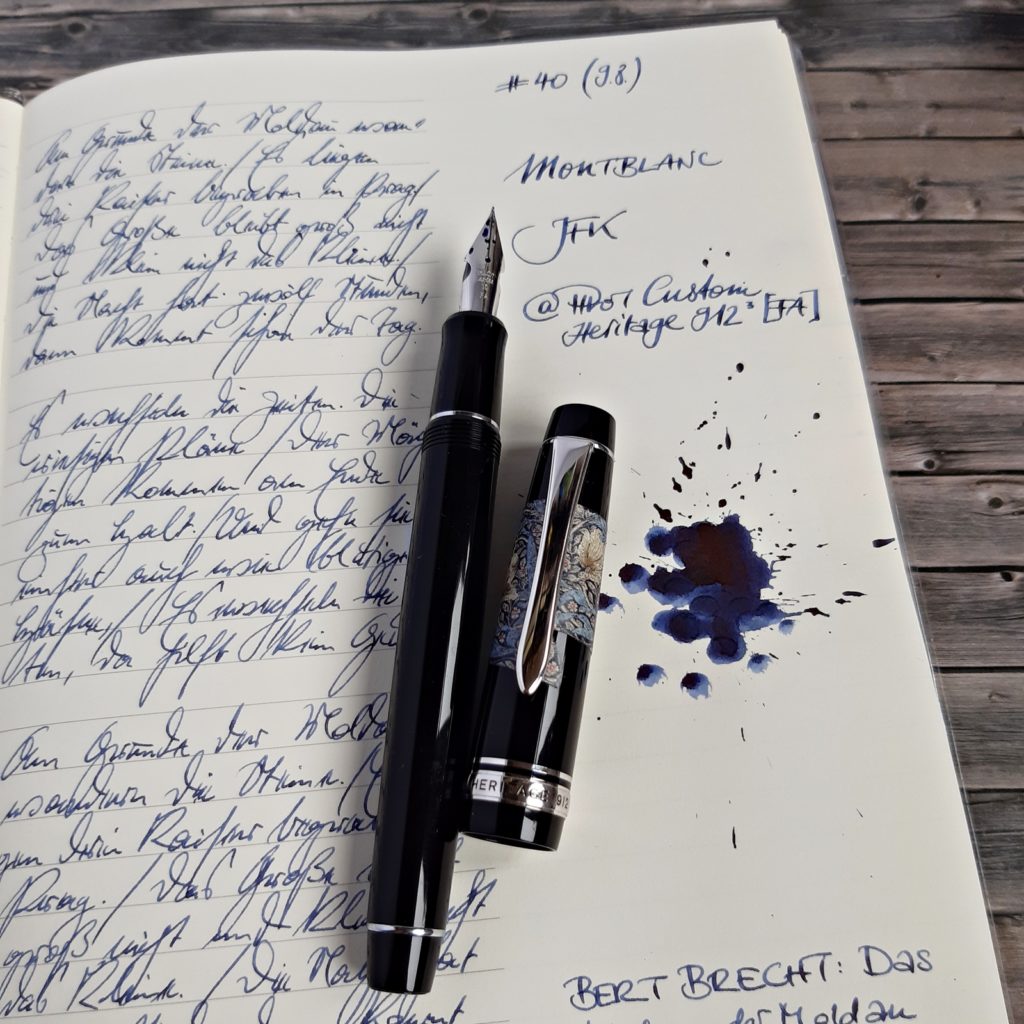 #40 (9.8.)
MONTBLANC
JFK
@ Custom
Heritage 912 [FA]
Am Grunde der Moldau wan-
dern die Steine. / Es liegen
drei Kaiser begraben in Prag /
das Große bleibt groß nicht
und klein nicht das Kleine. /
die Nacht hat zwölf Stunden,
dann kommt schon der Tag.
Es wechseln die Zeiten. Die
riesigen Pläne / Der Mäch
tigen kommen am Ende
zum Halt. / Und gehn sie
einher auch wie blutige
Hähne. / Es wechseln die
ten, da hilft kein
Am Grunde der Molda
wandern die Steine. /
gen drei Kaiser begra
Prag. / Das Große
groß nicht und
das Kleine. / Die hat
kommt
HERITAGE 912
BERT BRECHT: Das
der Moldau